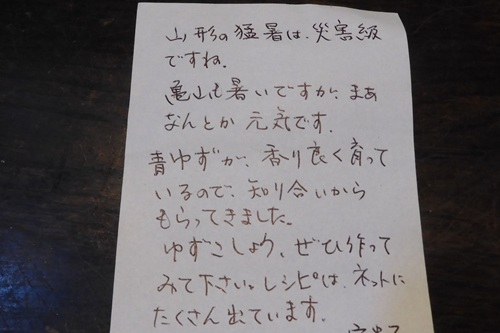 山形の猛暑は、災害級
ですね。
亀山も暑いですが、まあ
なんとか 元気です。
青ゆずが、香り良く育って
いるので、知り合いから
もらってきました。
ゆずこしょう、ぜひ作って
みて下さい。レシピは、ネットに
たくさん出ています。